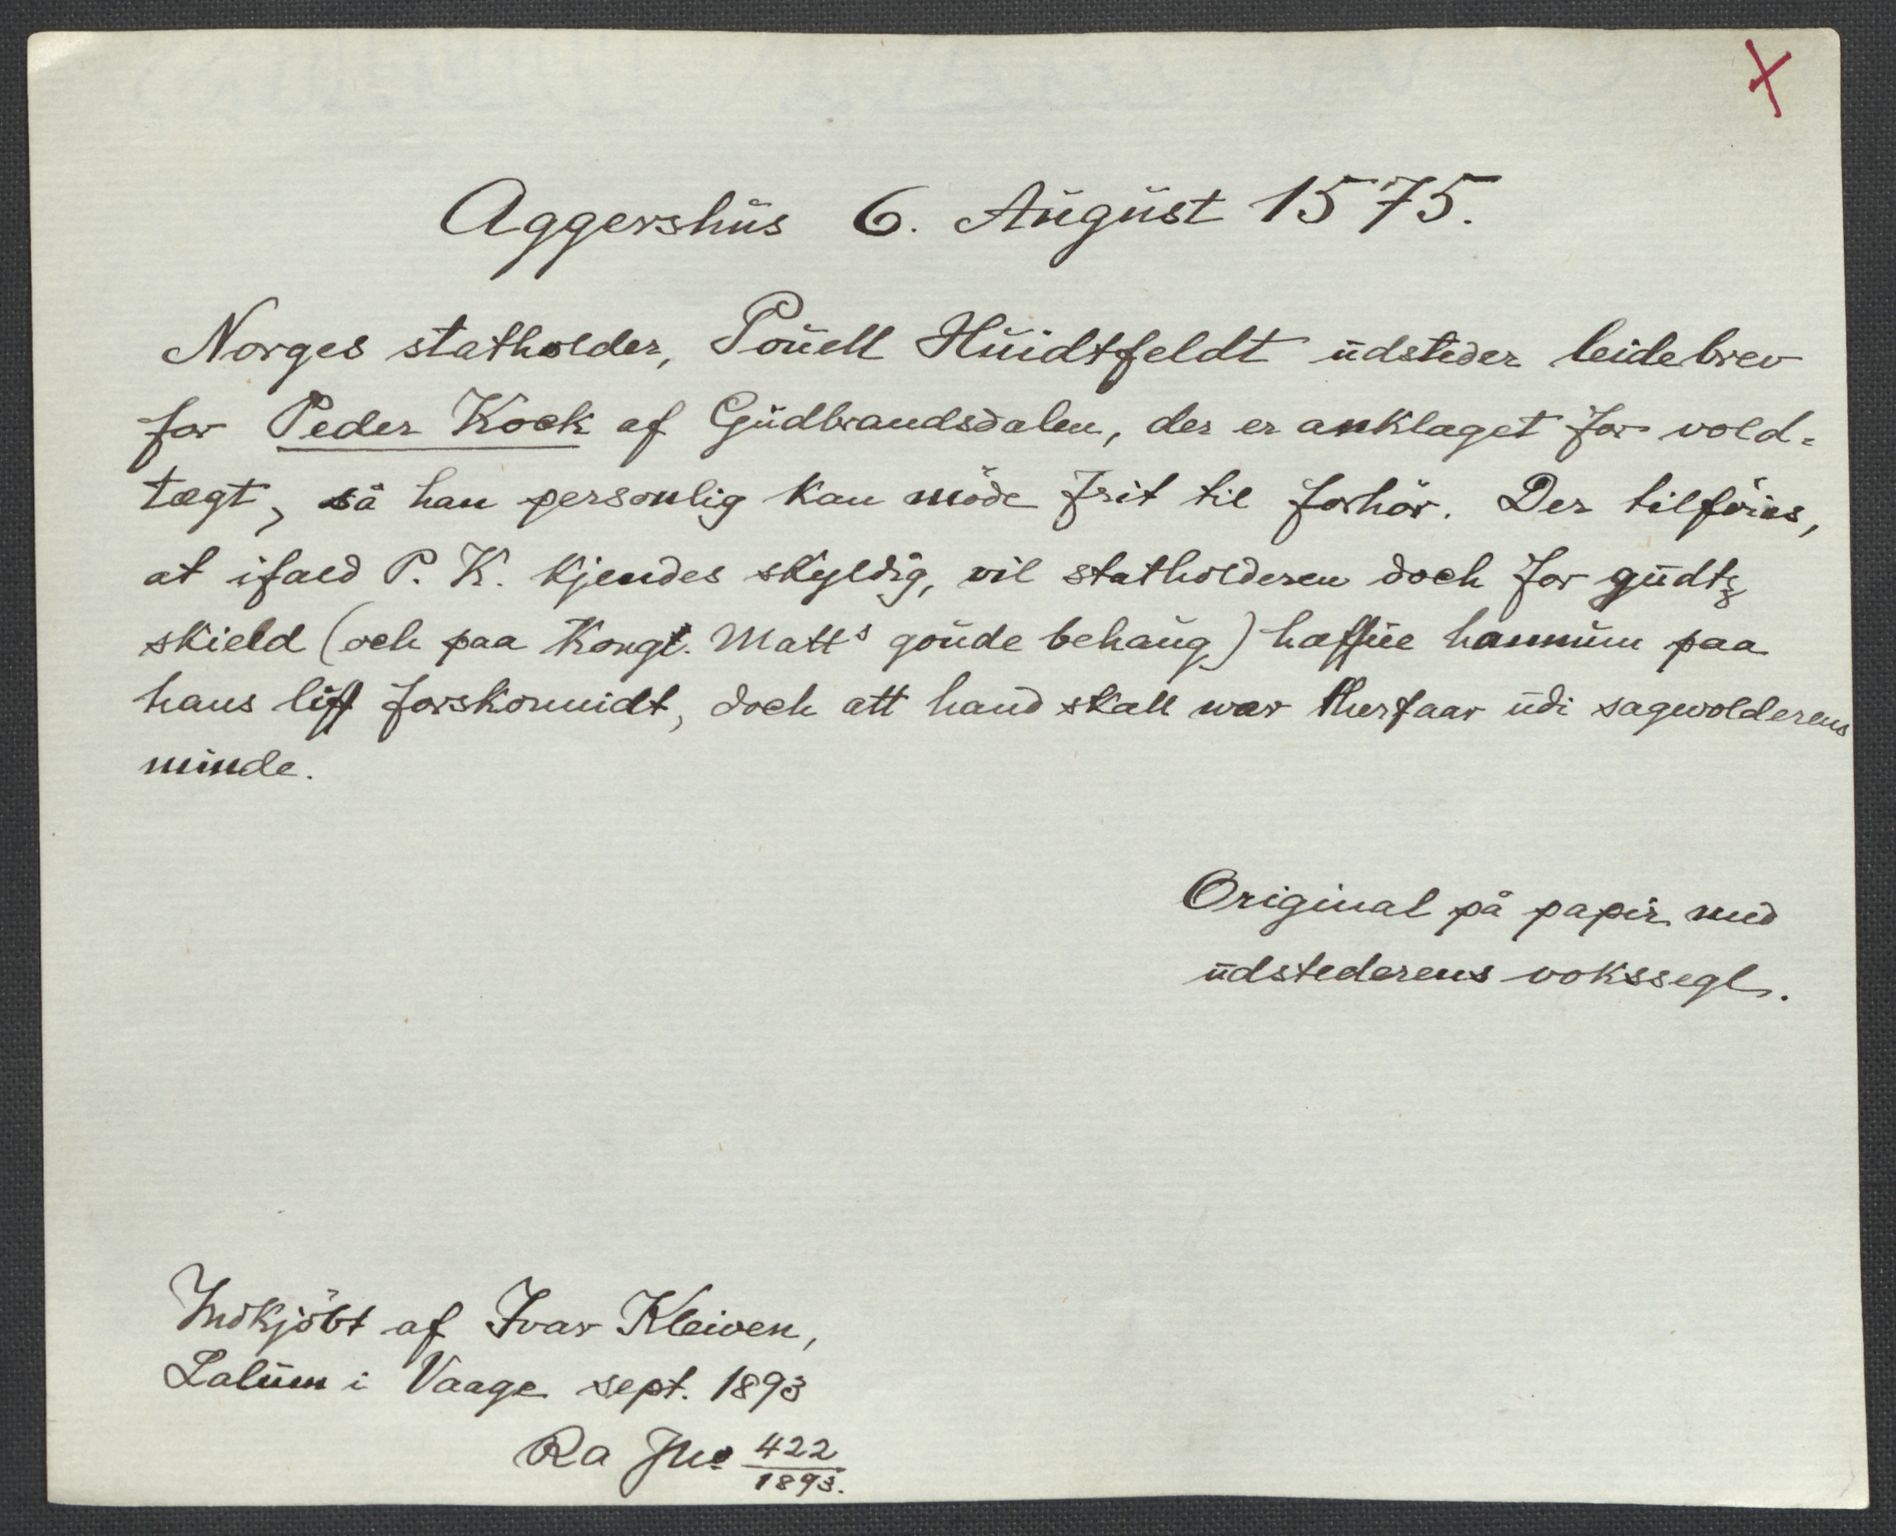 Aggershus 6. August 1575.
Norges statholder, Pouell Huidtfeldt udsteder leidebrev
for Peder Kock af Gudbrandsdalen, der er anklaget for vold-
tægt, så han personlig kan möde frit til forhör. Der tilföies,
at ifald P. K. kjendes skyldig, vil statholderen doch for gudtz
skield (och paa Kongl. Matts goude behaug) haffue hannum paa
hans liff forskonnidt, doch att hand skall wær therfaar udi sagwolderens
minde.
Original på papir med
udstederens vokssegl.
Indkjöbt af Ivar Kleiven,
Lalum i Vaage sept. 1893
Ra Jno 422
1893.